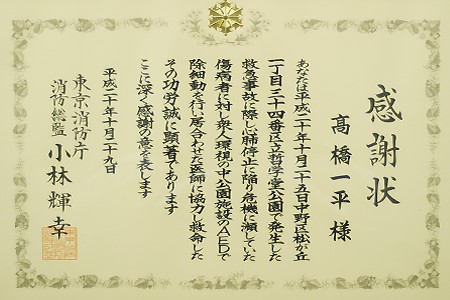 感謝状
高橋一平 様
あなたは平成二十年十月二十五日中野区松が丘
一丁目三十四番区立哲学堂公園で発生した
救急事故に際し心肺停止に陥り危機に瀕していた
傷病者に対し衆人環視の中公園施設のAEDで
除細動を行い居合わせた医師に協力し救命した
その功労は誠に顕著であります
ここに深く感謝の意を表します
平成二十年十月二十九日
東京消防庁
消防総監 小林輝幸